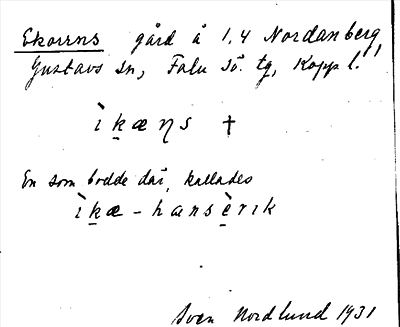 Ekorrns gård å 1,4 Nordanberg,
Gustavs sn, Falu sö. tg, Kopp l.
ìk̲æɳs †
En som bodde där, kallades
ìk̲æ-hansè̲rɪk
Sven Nordlund 1931